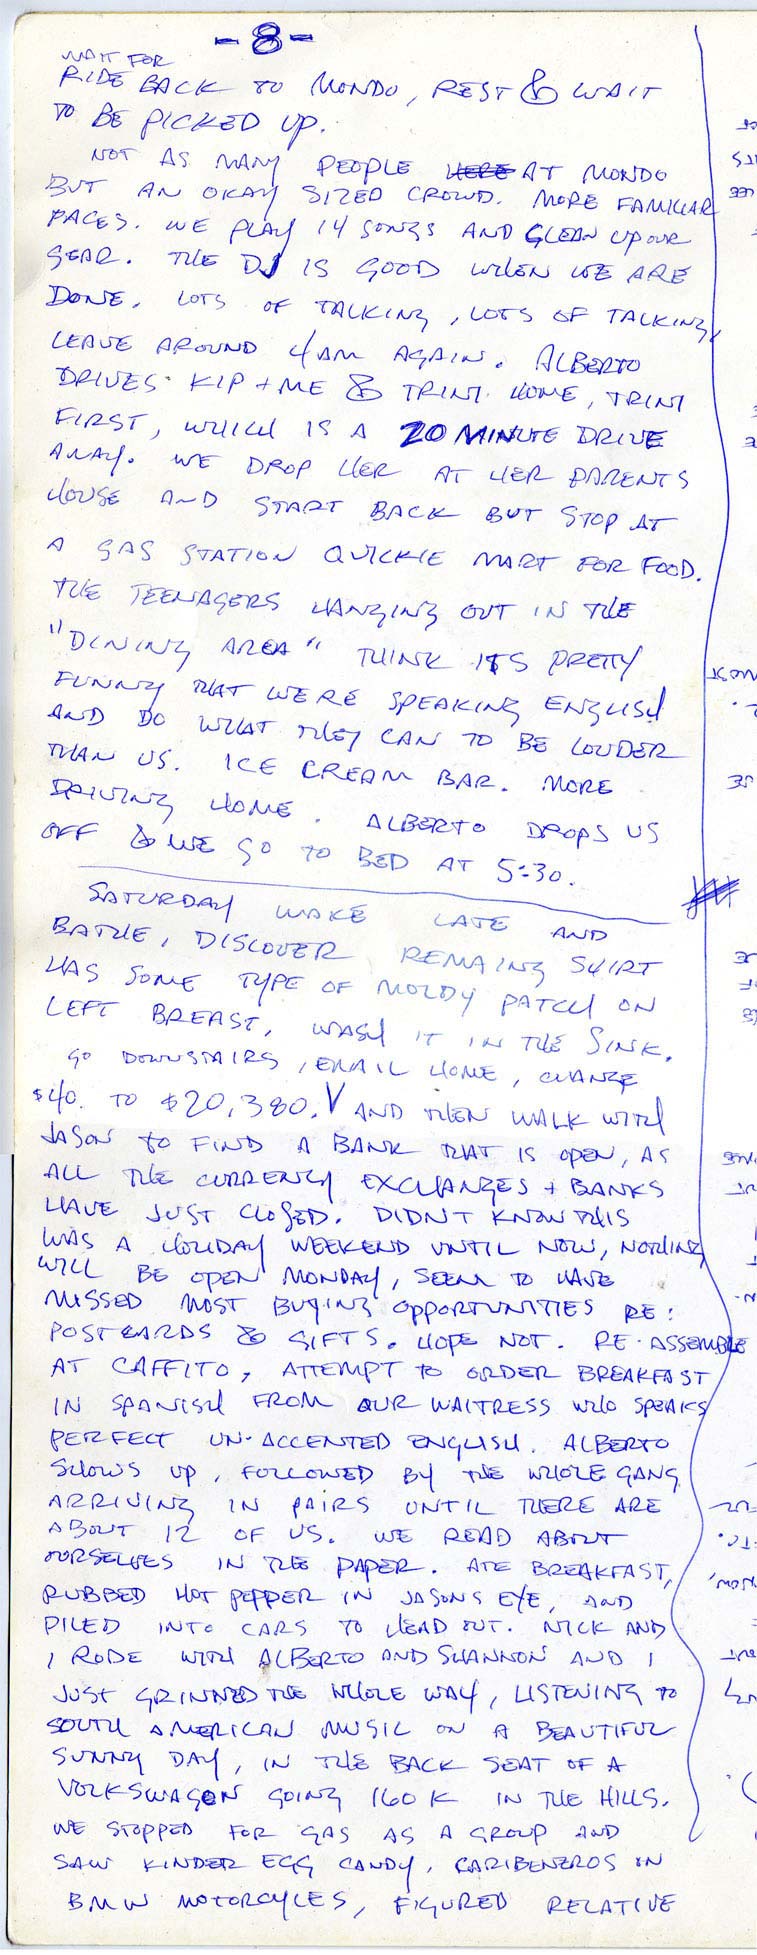 -8-
WAIT FOR
RIDE BACK TO MONDO, REST & WAIT
TO BE PICKED UP.
NOT AS MANY PEOPLE HERE AT MONDO
BUT AN OKAY SIZED CROWD. MORE FAMILIAR
FACES. WE PLAY 14 SONGS AND CLEAN UP OUR
GEAR. THE DJ IS GOOD WHEN WE ARE
DONE. LOTS OF TALKING, LOTS OF TALKING,
LEAVE AROUND 4AM AGAIN. ALBERTO
DRIVES KIP + ME & TRINI HOME, TRINI
FIRST, WHICH IS A 20 MINUTE DRIVE
AWAY. WE DROP HER AT HER PARENTS
HOUSE AND START BACK BUT STOP AT
A GAS STATION QUICKIE MART FOR FOOD.
THE TEENAGERS HANGING OUT IN THE
"DINING AREA" THINK ITS PRETTY
FUNNY THAT WE'RE SPEAKING ENGLISH
AND DO WHAT THEY CAN TO BE LOUDER
THAN US. ICE CREAM BAR. MORE
DRIVING HOME. ALBERTO DROPS US
OFF & WE GO TO BED AT 5:30.
SATURDAY WAKE LATE AND
BATHE, DISCOVER REMAING SHIRT
HAS SOME TYPE OF MOLDY PATCH ON
LEFT BREAST, WASH IT IN THE SINK.
GO DOWNSTAIRS, EMAIL HOME, CHANGE
$40. TO $20,380. AND THEN WALK WITH
JASON TO FIND A BANK THAT IS OPEN, AS
ALL THE CURRENCY EXCHANGES + BANKS
HAVE JUST CLOSED. DIDN'T KNOW THIS
WAS A HOLIDAY WEEKEND UNTIL NOW, NOTHING
WILL BE OPEN MONDAY, SEEM TO HAVE
MISSED MOST BUYING OPPORTUNITIES RE:
POSTCARDS & GIFTS. HOPE NOT. RE-ASSEMBLE
AT CAFFITO, ATTEMPT TO ORDER BREAKFAST
IN SPANISH FROM OUR WAITRESS WHO SPEAKS
PERFECT UN-ACCENTED ENGLISH. ALBERTO
SHOWS UP, FOLLOWED BY THE WHOLE GANG
ARRIVING IN PAIRS UNTIL THERE ARE
ABOUT 12 OF US. WE READ ABOUT
OURSELVES IN THE PAPER. ATE BREAKFAST,
RUBBED HOT PEPPER IN JASONS EYE, AND
PILED INTO CARS TO HEAD OUT. NICK AND
I RODE WITH ALBERTO AND SHANNON AND I
JUST GRINNED THE WHOLE WAY, LISTENING TO
SOUTH AMERICAN MUSIC ON A BEAUTIFUL
SUNNY DAY, IN THE BACK SEAT OF A
VOLKSWAGEN GOING 160 K IN THE HILLS.
WE STOPPED FOR GAS AS A GROUP AND
SAW KINDER EGG CANDY, CARIBENEROS ON
BMW MOTORCYLES, FIGURED RELATIVE